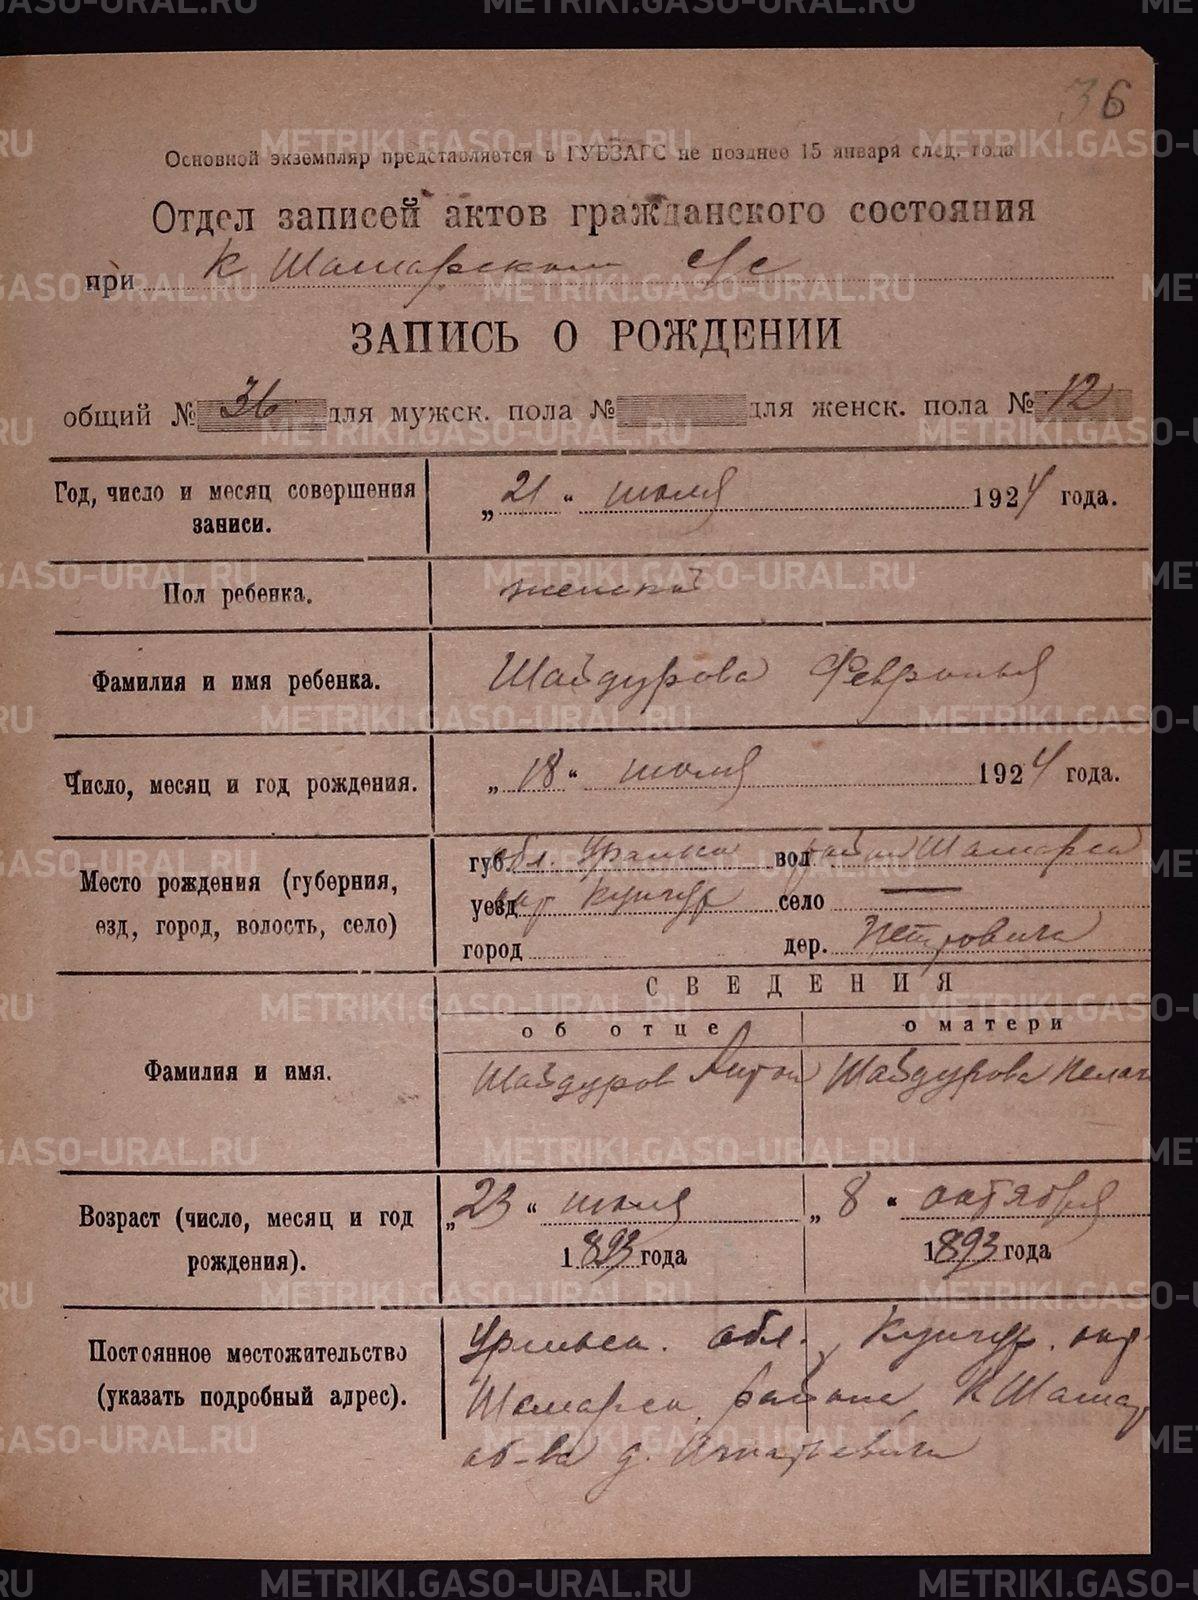 36
Основной экземпляр представляется в ГУБЗАГС не позднее 15 января след. года
Отдел записей актов гражданского состояния
при К Шамарском с/с
ЗАПИСЬ О РОЖДЕНИИ
общий № 36 для мужск. пола № для женск. пола № 12
Год, число и месяц совершения записи.
„21“ июля 1924 года.
Пол ребенка.
женский
Фамилия и имя ребенка.
Шайдурова Февронья
Число, месяц и год рождения.
„18“ июля 1924 года.
Место рождения (губерния,
езд, город, волость, село)
губ. обл. Уральск вол. район Шамарск
уезд окр Кунгур село —
город дер. Петровича
СВЕДЕНИЯ
об отце
о матери
Фамилия и имя.
Шайдуров Антон
Шайдурова Пелаг
Возраст (число, месяц и год
рождения).
„23“ июля
1893 года
„8“ октября
1893 года
Постоянное местожительство
(указать подробный адрес).
Уральск. обл., Кунгур. окр.
Шамарск. района, К Шамар
об-ва д. Игнатьевича
METRIKI.GASO-URAL.RU